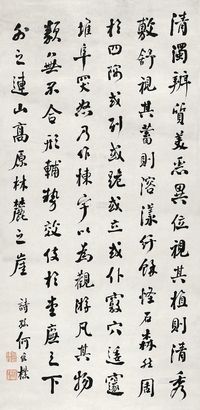 清濁辨質美惡異位視其植則清秀
敷舒視其蓄則溶漾紆餘怪石森然周
於四隅或列或跪或立或仆竅穴逶邃
堆阜突怒乃作棟宇以為觀游凡其物
類無不合形輔勢效伎於堂廡之下
外之連山高原林麓之崖
詩孫何維樸